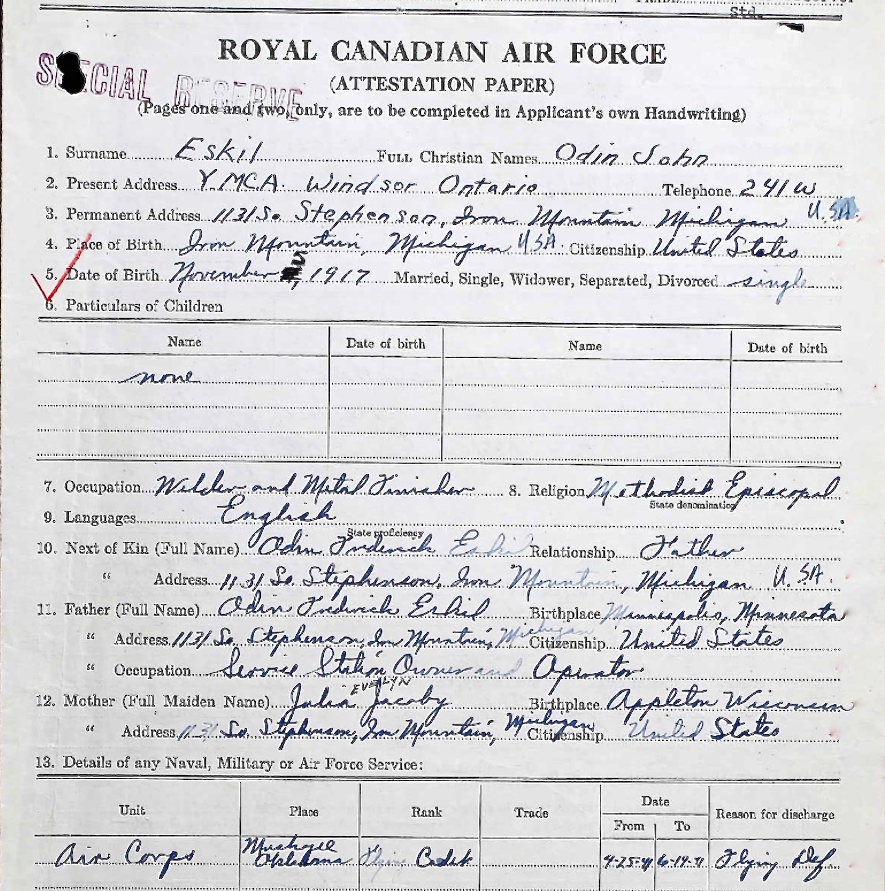 Std.
ROYAL CANADIAN AIR FORCE
SPECIAL RESERVE
(ATTESTATION PAPER)
(Pages one and two, only, are to be completed in Applicant's own Handwriting)
1. Surname Eskil FULL Christian Names Odin John
2. Present Address YMCA Windsor Ontario Telephone 241W
3. Permanent Address 1131 So. Stephenson, Iron Mountain Michigan U.S.A.
4. Place of Birth Iron Mountain, Michigan USA. Citizenship United States
5. Date of Birth November 1917 Married, Single, Widower, Separated, Divorced single
6. Particulars of Children
Name Date of birth Name Date of birth
none
7. Occupation Welder and Metal Finisher 8. Religion Methodist Episcopal
State denomination
9. Languages English
State proficiency
10. Next of Kin (Full Name) Odin Frederick Eskil Relationship Father
" Address 1131 So. Stephenson, Iron Mountain, Michigan U.S.A.
11. Father (Full Name) Odin Fredrick Eskil Birthplace Minneapolis, Minnesota
" Address 1131 So. Stephenson, Iron Mountain, Michigan Citizenship United States
" Occupation Service Station Owner and Operator
EVELYN
12. Mother (Full Maiden Name) Julia Jacoby Birthplace Appleton Wisconsin
" Address 1131 So. Stephenson, Iron Mountain, Michigan Citizenship United States
13. Details of any Naval, Military or Air Force Service:
Unit Place Rank Trade Date Reason for discharge
From To
Air Corps Oklahoma Flying Cadet 4-25-41 6-19-41 Flying Def.